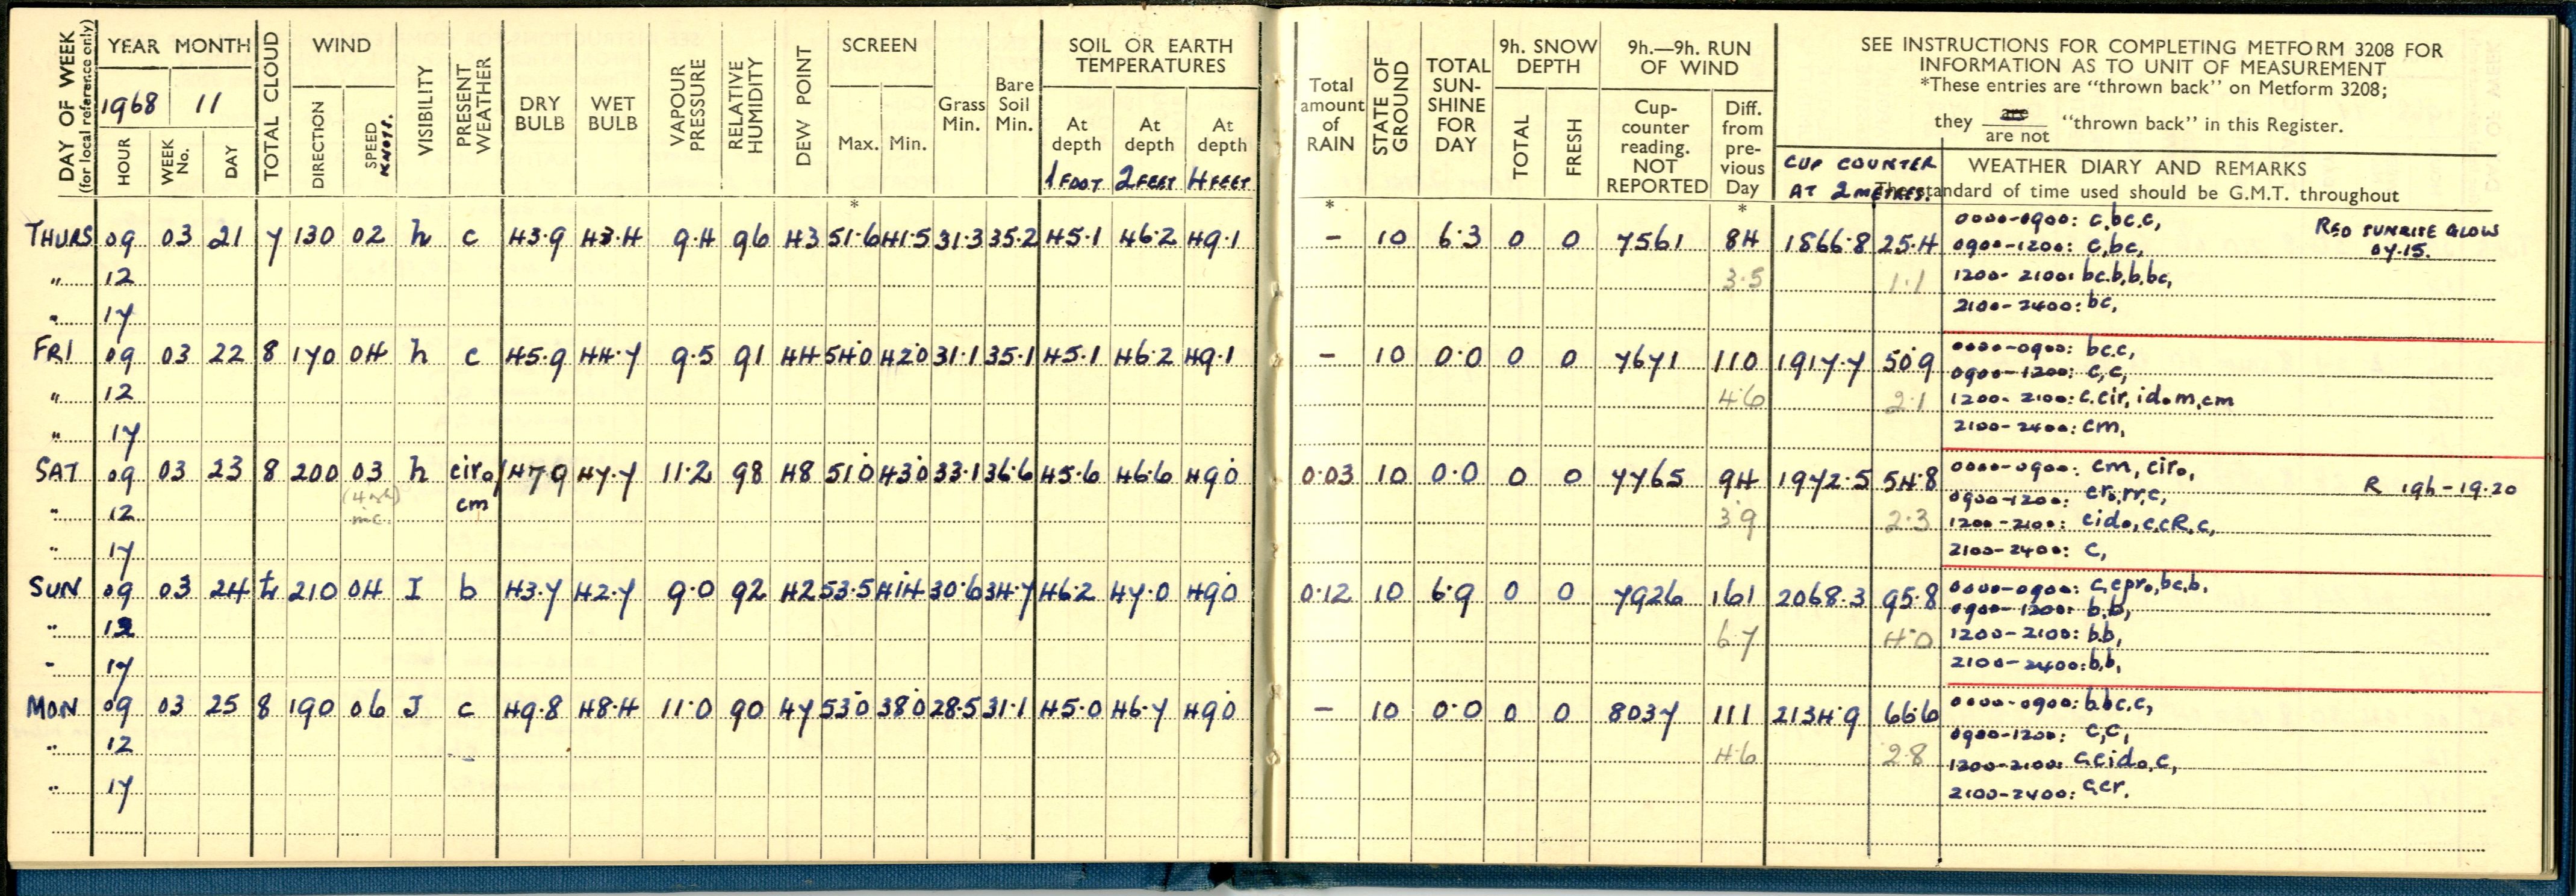 DAY OF WEEK (for local reference only)
YEAR MONTH
1968 11
HOUR WEEK No. DAY
TOTAL CLOUD
WIND
DIRECTION SPEED KNOTS.
VISIBILITY
PRESENT WEATHER
DRY BULB
WET BULB
VAPOUR PRESSURE
RELATIVE HUMIDITY
DEW POINT
SCREEN
Max. Min.
Grass Min.
Bare Soil Min.
SOIL OR EARTH TEMPERATURES
At depth 1 FOOT At depth 2 FEET At depth 4 FEET
Total amount of RAIN
STATE OF GROUND
TOTAL SUN-SHINE FOR DAY
9h. SNOW DEPTH
TOTAL FRESH
9h.—9h. RUN OF WIND
Cup-counter reading. NOT REPORTED
Diff. from pre-vious Day
SEE INSTRUCTIONS FOR COMPLETING METFORM 3208 FOR
INFORMATION AS TO UNIT OF MEASUREMENT
*These entries are "thrown back" on Metform 3208;
they are / are not "thrown back" in this Register.
CUP COUNTER AT 2 METRES.
WEATHER DIARY AND REMARKS
The standard of time used should be G.M.T. throughout
* * *
THURS 09 03 21 7 130 02 h c 43.9 43.4 9.4 96 43 51.6 41.5 31.3 35.2 45.1 46.2 49.1 – 10 6.3 0 0 7561 84 1866.8 25.4 0000-0900: c,bc.c, RED SUNRISE GLOW
0900-1200: c,bc, 07.15.
" 12 3.5 1.1 1200-2100: bc.b,b,bc,
" 17 2100-2400: bc,
FRI 09 03 22 8 170 04 h c 45.9 44.7 9.5 91 44 54.0 42.0 31.1 35.1 45.1 46.2 49.1 – 10 0.0 0 0 7671 110 1917.7 50.9 0000-0900: bc.c,
0900-1200: c,c,
" 12 4.6 2.1 1200-2100: c.cir, ido m,cm
" 17 2100-2400: cm,
SAT 09 03 23 8 200 03 h ciro/ 47.9 47.7 11.2 98 48 51.0 43.0 33.1 36.6 45.6 46.6 49.0 0.03 10 0.0 0 0 7765 94 1972.5 54.8 0000-0900: cm, ciro,
cm 0900-1200: cro,rr,c, R 19h-19.20
" 12 3.9 2.3 1200-2100: cido,c,cR,c,
" 17 2100-2400: c,
SUN 09 03 24 210 04 I b 43.7 42.7 9.0 92 42 53.5 41.4 30.6 34.7 46.2 47.0 49.0 0.12 10 6.9 0 0 7926 161 2068.3 95.8 0000-0900: c,cpro,bc,b,
0900-1200: b,b,
" 12 6.7 4.0 1200-2100: b,b,
" 17 2100-2400: b,b,
MON 09 03 25 8 190 06 J c 49.8 48.4 11.0 90 47 53.0 38.0 28.5 31.1 45.0 46.7 49.0 – 10 0.0 0 0 8037 111 2134.9 66.6 0000-0900: b,bc.c,
0900-1200: c,c,
" 12 4.6 2.8 1200-2100: c,cido,c,
" 17 2100-2400: c,cr.